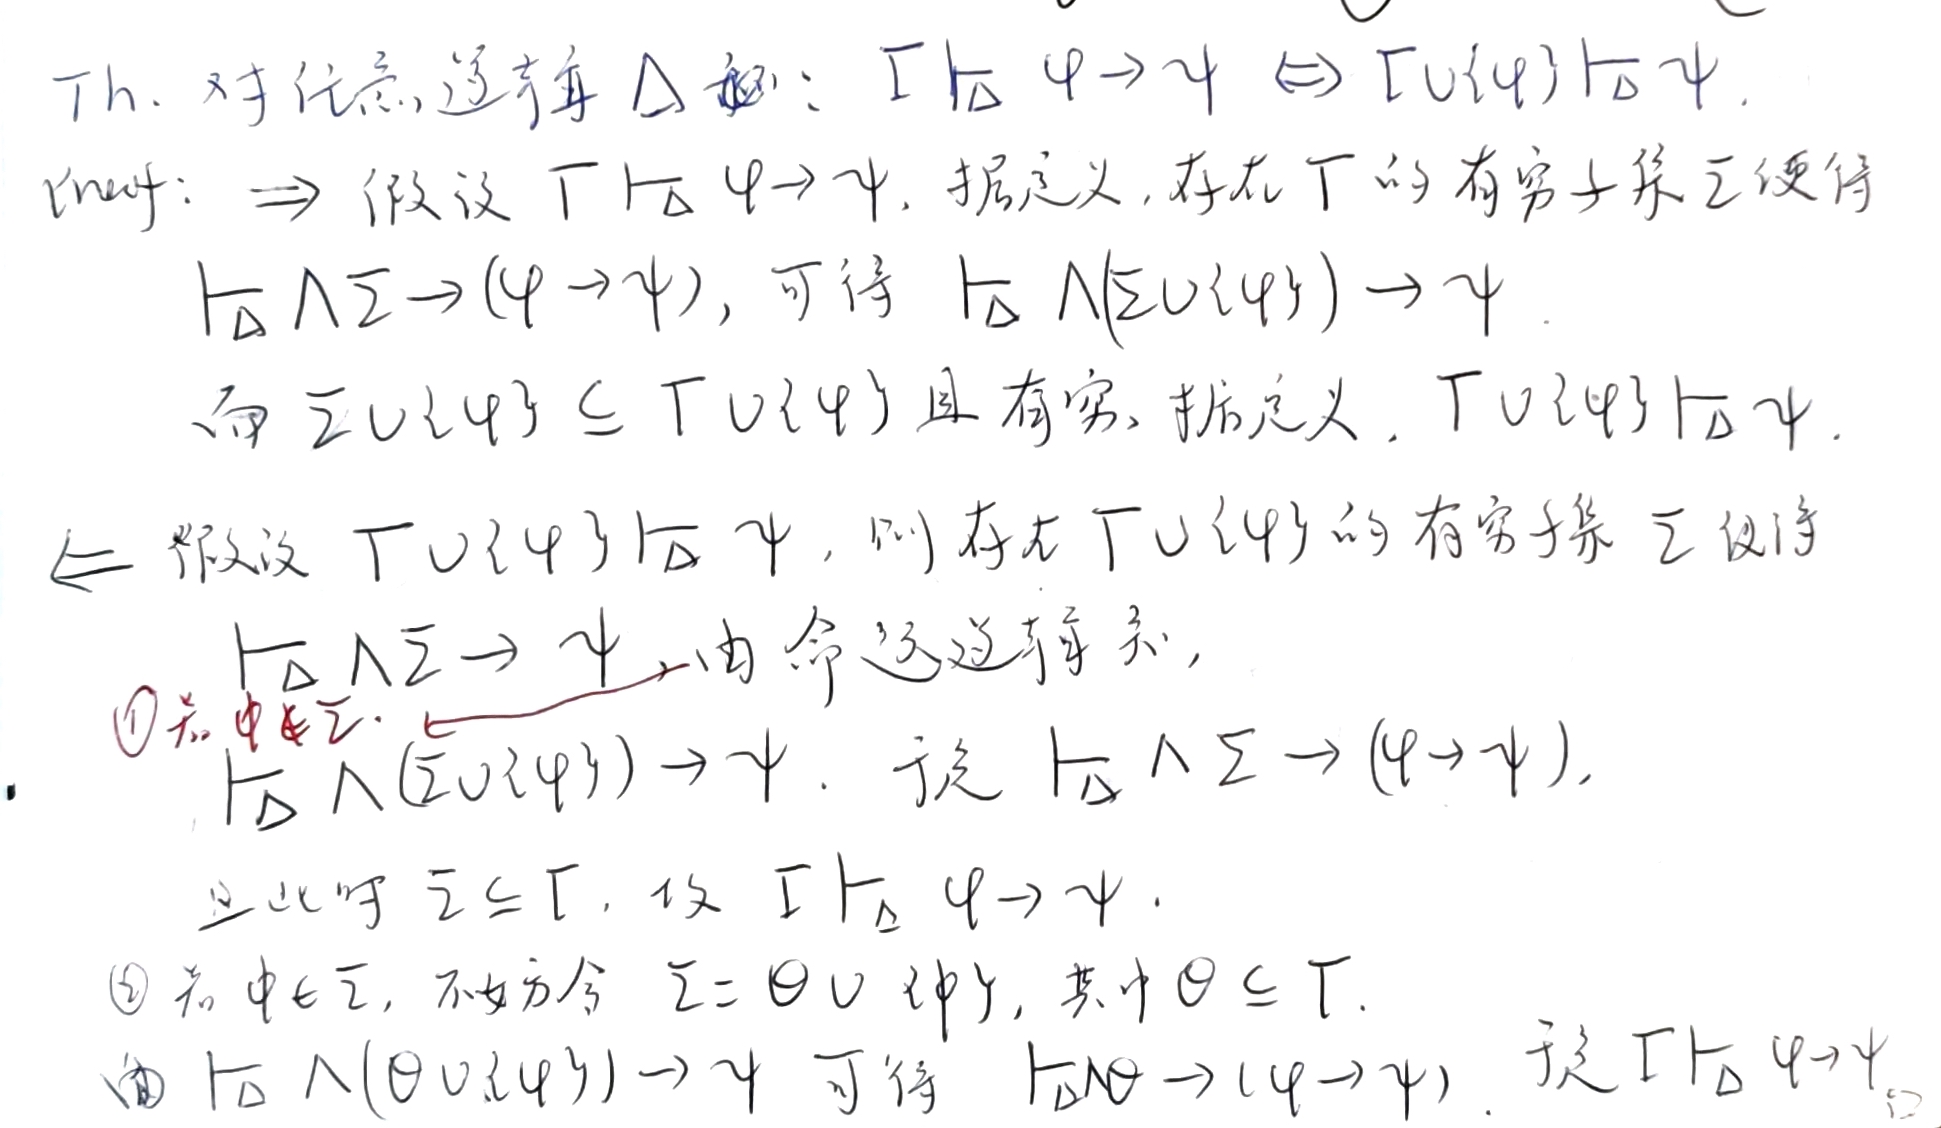 Th. 对任意逻辑 Δ : Γ ⊢_Δ φ → ψ ⇔ Γ∪{φ} ⊢_Δ ψ.
Proof: ⇒ 假设 Γ ⊢_Δ φ → ψ. 据定义, 存在 Γ 的有穷子集 Σ 使得
⊢_Δ ∧Σ → (φ → ψ), 可得 ⊢_Δ ∧(Σ∪{φ}) → ψ.
而 Σ∪{φ} ⊆ Γ∪{φ} 且有穷, 据定义, Γ∪{φ} ⊢_Δ ψ.
⇐ 假设 Γ∪{φ} ⊢_Δ ψ, 则存在 Γ∪{φ} 的有穷子集 Σ 使得
⊢_Δ ∧Σ → ψ, 由命题逻辑知,
① 若 φ∉Σ.
⊢_Δ ∧(Σ∪{φ}) → ψ. 于是 ⊢_Δ ∧Σ → (φ → ψ),
且此时 Σ ⊆ Γ, 故 Γ ⊢_Δ φ → ψ.
② 若 φ∈Σ, 不妨令 Σ = Θ∪{φ}, 其中 Θ ⊆ Γ.
由 ⊢_Δ ∧(Θ∪{φ}) → ψ 可得 ⊢_Δ ∧Θ → (φ → ψ). 于是 Γ ⊢_Δ φ → ψ □